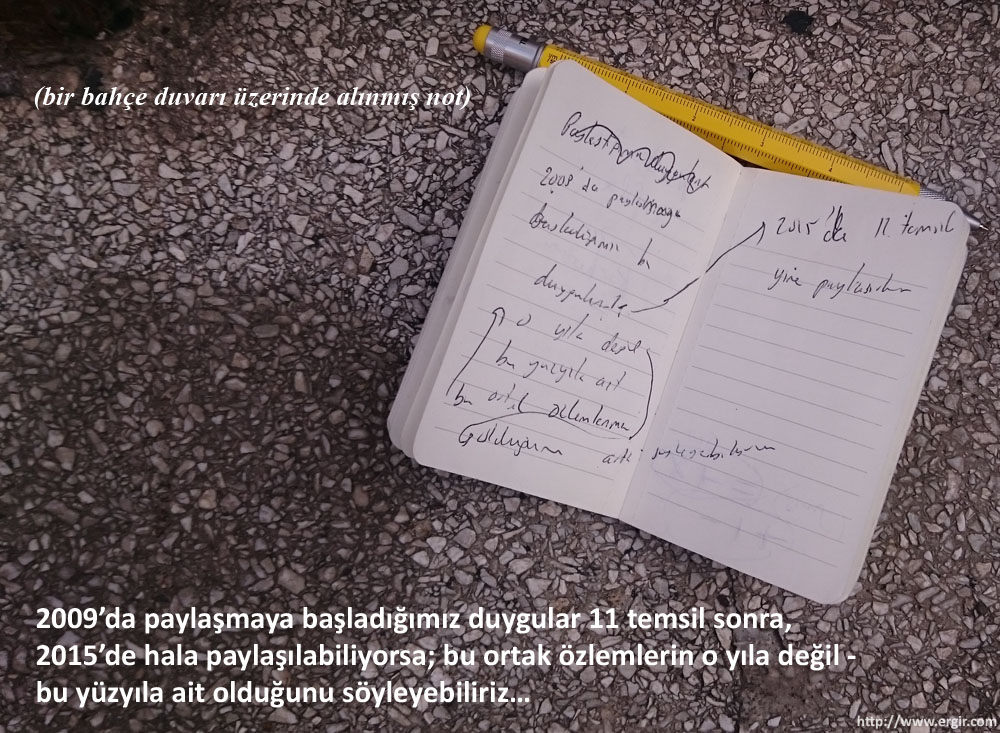 (bir bahçe duvarı üzerinde alınmış not)
2009'da paylaşmaya
başladığımız bu
duygularla
o yıla değil
bu yüzyıla ait
bu ortak özlemlerin
olduğunu artık söyleyebiliriz
2015'de 11. temsil
yine paylaşılan
2009’da paylaşmaya başladığımız duygular 11 temsil sonra,
2015’de hala paylaşılabiliyorsa; bu ortak özlemlerin o yıla değil -
bu yüzyıla ait olduğunu söyleyebiliriz...
http://www.ergir.com